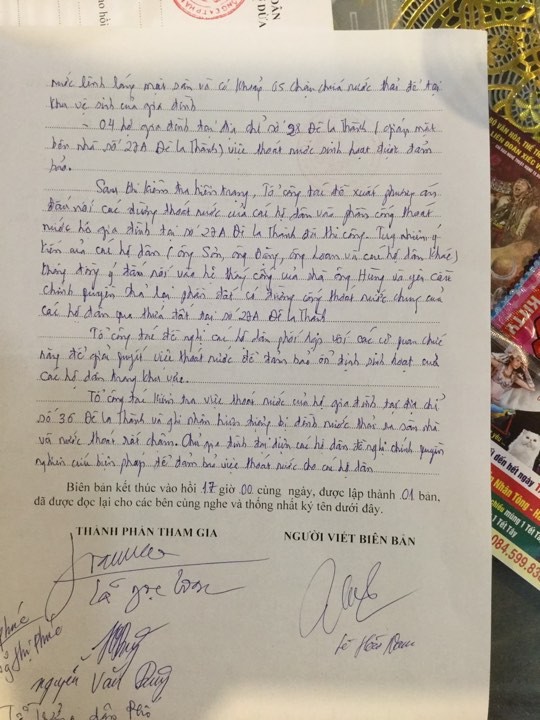 DÂN
DỪA
nước lênh láng mặt sân và có khoảng 05 chậu chứa nước thải để tại
khu vệ sinh của gia đình
- 04 hộ gia đình tại địa chỉ số 23 Đê La Thành (giáp mặt
bên nhà số 27A Đê La Thành) việc thoát nước sinh hoạt được đảm
bảo.
Sau khi kiểm tra hiện trạng, Tổ công tác đề xuất phương án
đấu nối các đường thoát nước của các hộ dân vào phần cống thoát
nước hộ gia đình tại số 27A Đê La Thành đã thi công. Tuy nhiên ý
kiến của các hộ dân (ông Sơn, ông Dũng, ông Loan và các hộ dân khác)
không đồng ý đấu nối vào hệ thống cống của nhà ông Hùng và yêu cầu
chính quyền trả lại phần đất có đường cống thoát nước chung của
các hộ dân qua thửa đất tại số 27A Đê La Thành
Tổ công tác đề nghị các hộ dân phối hợp với các cơ quan chức
năng để giải quyết việc thoát nước để đảm bảo ổn định sinh hoạt của
các hộ dân trong khu vực.
Tổ công tác kiểm tra việc thoát nước của hộ gia đình tại địa chỉ
số 36 Đê La Thành và ghi nhận hiện tượng bị đọng nước thải ra sân nhà
và nước thoát rất chậm. Chủ gia đình đại diện các hộ dân đề nghị chính quyền
nghiên cứu biện pháp để đảm bảo việc thoát nước cho các hộ dân
Biên bản kết thúc vào hồi 17 giờ 00 cùng ngày, được lập thành 01 bản,
đã được đọc lại cho các bên cùng nghe và thống nhất ký tên dưới đây.
THÀNH PHẦN THAM GIA
NGƯỜI VIẾT BIÊN BẢN
Lê
nguyễn Văn Dũng
LIÊN ĐOÀN XIẾC
084.599.83